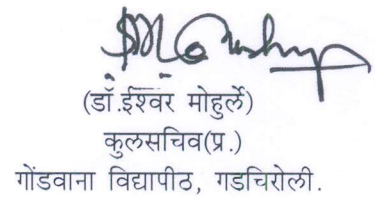 (डॉ.ईश्वर मोहुर्ले)
कुलसचिव(प्र.)
गोंडवाना विद्यापीठ, गडचिरोली.